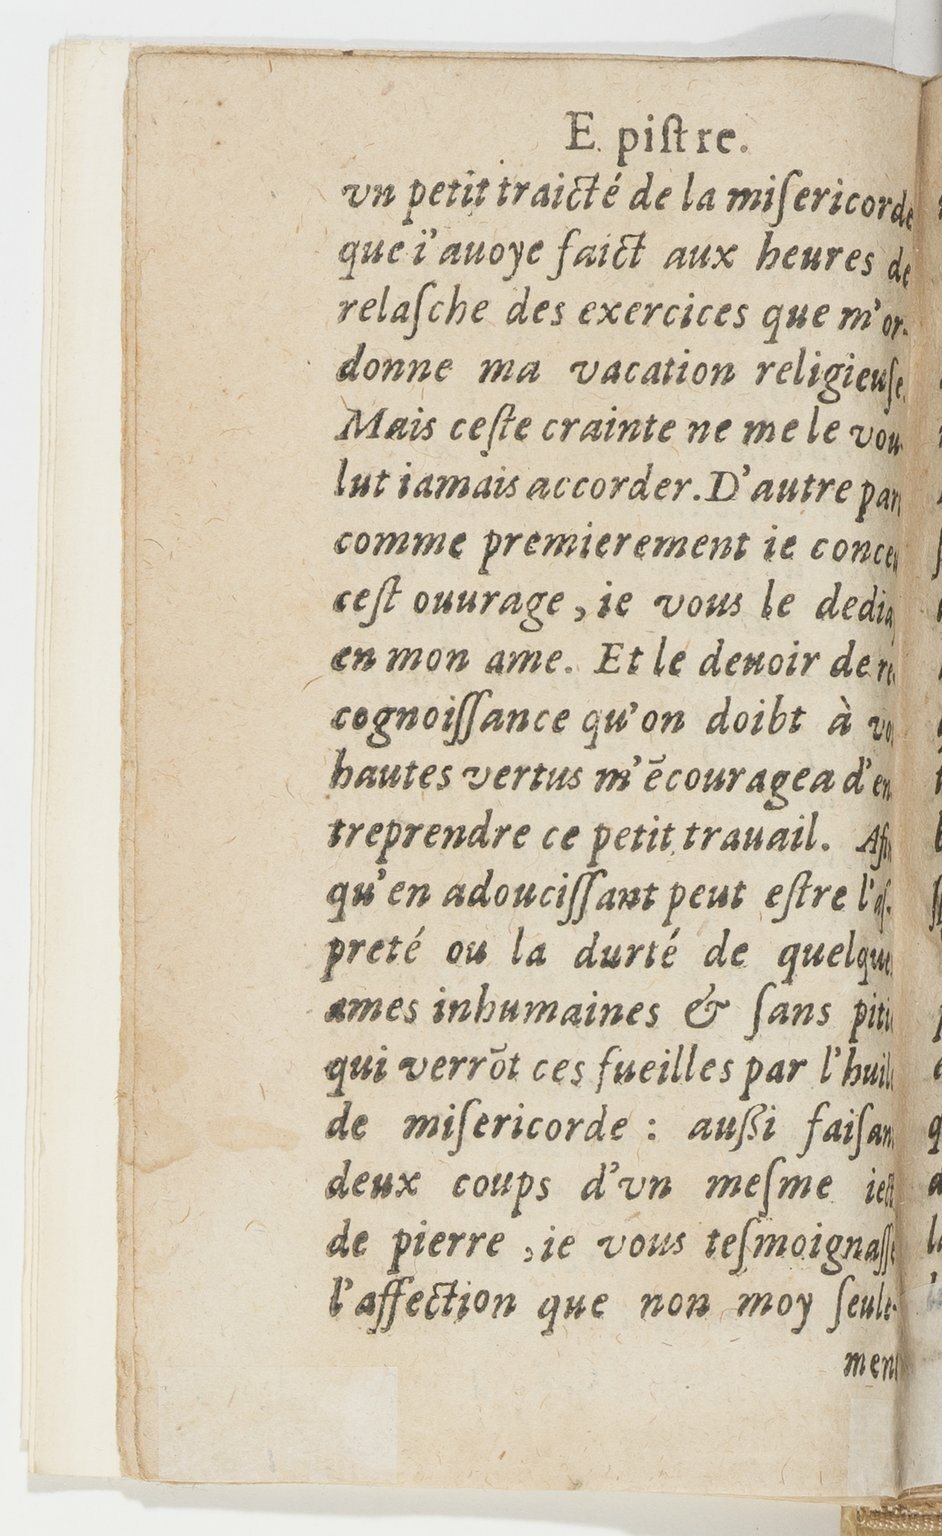 E piſtre.
vn petit traicté de la miſericorde
que i'auoye faict aux heures de
relaſche des exercices que m'or-
donne ma vacation religieuſe.
Mais ceſte crainte ne me le vou-
lut iamais accorder. D'autre part
comme premierement ie conceu
ceſt ouurage, ie vous le dediay
en mon ame. Et le deuoir de re-
cognoiſſance qu'on doibt à vos
hautes vertus m'ẽcouragea d'en-
treprendre ce petit trauail. Afin
qu'en adouciſſant peut eſtre l'aſ-
preté ou la durté de quelques
ames inhumaines & ſans pitié
qui verrõt ces fueilles par l'huile
de miſericorde : außi faiſant
deux coups d'vn meſme iect
de pierre, ie vous teſmoignaſſe
l'affection que non moy ſeule-
ment